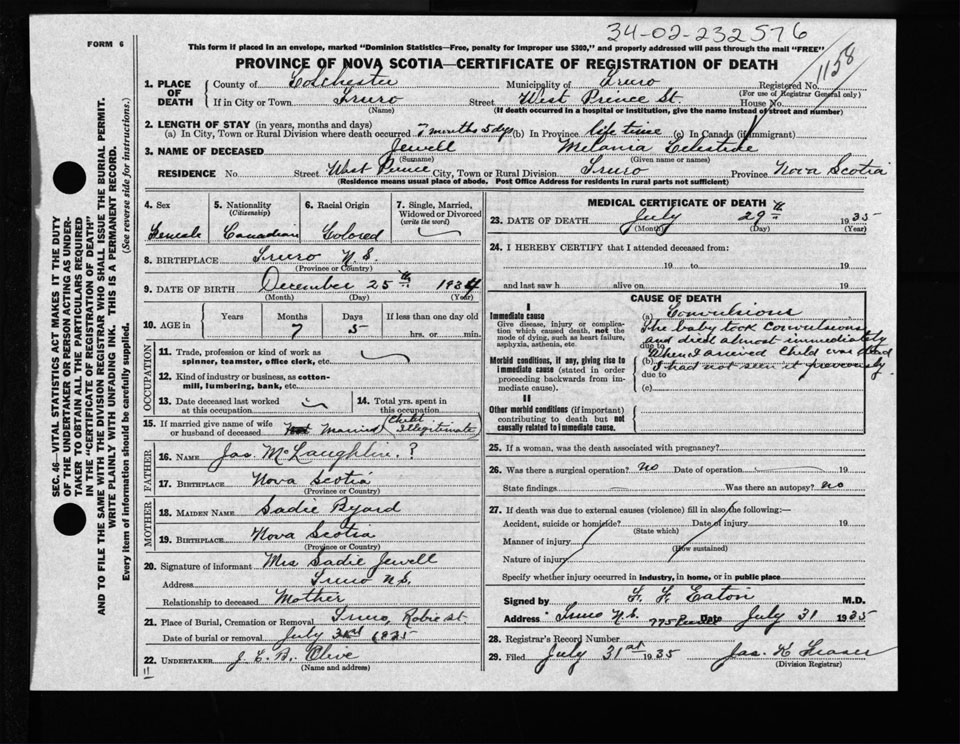 34-02-232576
1158
FORM 6
This form if placed in an envelope, marked "Dominion Statistics—Free, penalty for improper use $300," and properly addressed will pass through the mail "FREE"
PROVINCE OF NOVA SCOTIA—CERTIFICATE OF REGISTRATION OF DEATH
1. PLACE OF DEATH County of Colchester Municipality of Truro Registered No.
(For use of Registrar General only)
If in City or Town Truro Street West Prince St House No.
(If death occurred in hospital or institution, give the name instead of street and number)
2. LENGTH OF STAY (in years, months and days)
(a) In City, Town or Rural Division where death occurred 7 months 5 dys (b) In Province life time (c) In Canada (if immigrant)
3. NAME OF DECEASED Jewell Melania Celestine
(Surname) (Given name or names)
RESIDENCE No. Street West Prince City, Town or Rural Division Truro Province Nova Scotia
(Residence means usual place of abode. Post Office Address for residents in rural parts not sufficient)
4. Sex 5. Nationality (Citizenship) 6. Racial Origin 7. Single, Married, Widowed or Divorced (write the word)
Female Canadian Colored
8. BIRTHPLACE Truro N.S.
(Province or Country)
9. DATE OF BIRTH December 25th 1934
(Month) (Day) (Year)
10. AGE in Years Months Days If less than one day old
7 5 hrs. or min.
OCCUPATION
11. Trade, profession or kind of work as spinner, teamster, office clerk, etc.
12. Kind of industry or business, as cotton-mill, lumbering, bank, etc.
13. Date deceased last worked at this occupation 14. Total yrs. spent in this occupation
15. If married give name of wife or husband of deceased Not Married (Child Illegitimate)
FATHER
16. NAME Jas. McLaughlin. ?
17. BIRTHPLACE Nova Scotia
(Province or Country)
MOTHER
18. MAIDEN NAME Sadie Byard
19. BIRTHPLACE Nova Scotia
(Province or Country)
20. Signature of informant Mrs Sadie Jewell
Address Truro N.S.
Relationship to deceased Mother
21. Place of Burial, Cremation or Removal Truro, Robie st
Date of burial or removal July 1935
22. UNDERTAKER J. L. B. Olive
(Name and address)
11
MEDICAL CERTIFICATE OF DEATH
23. DATE OF DEATH July 29th 1935
(Month) (Day) (Year)
24. I HEREBY CERTIFY that I attended deceased from:
19 to 19
and last saw h alive on 19
CAUSE OF DEATH
I
Immediate cause
Give disease, injury or complication which caused death, not the mode of dying, such as heart failure, asphyxia, asthenia, etc.
Morbid conditions, if any, giving rise to immediate cause (stated in order proceeding backwards from immediate cause).
II
Other morbid conditions (if important) contributing to death but not causally related to immediate cause.
(a) Convulsions
The baby took convulsions
due to and died almost immediately
(b) When I arrived child was dead
due to I had not seen it previously
(c)
25. If a woman, was the death associated with pregnancy?
26. Was there a surgical operation? No Date of operation 19
State findings Was there an autopsy? No
27. If death was due to external causes (violence) fill in also the following:—
Accident, suicide or homicide? Date of injury 19
(State which)
Manner of injury
(How sustained)
Nature of injury
Specify whether injury occurred in industry, in home, or in public place
Signed by F. F. Eaton M.D.
Address Truro N.S. 775 Date July 31 1935
28. Registrar's Record Number
29. Filed July 31st 1935 Jas. K Fraser
(Division Registrar)
SEC. 46—VITAL STATISTICS ACT MAKES IT THE DUTY
OF THE UNDERTAKER OR PERSON ACTING AS UNDERTAKER TO OBTAIN ALL THE PARTICULARS REQUIRED
IN THE "CERTIFICATE OF REGISTRATION OF DEATH"
AND TO FILE THE SAME WITH THE DIVISION REGISTRAR WHO SHALL ISSUE THE BURIAL PERMIT.
WRITE PLAINLY WITH UNFADING INK. THIS IS A PERMANENT RECORD.
Every item of information should be carefully supplied. (See reverse side for instructions.)